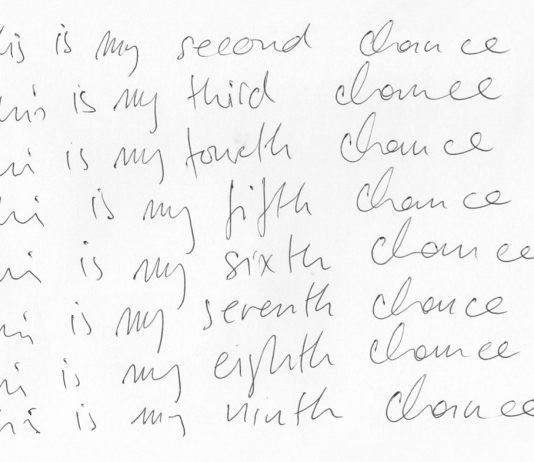 his is my second chance
his is my third chance
his is my fourth chance
his is my fifth chance
his is my sixth chance
his is my seventh chance
his is my eighth chance
his is my ninth chance